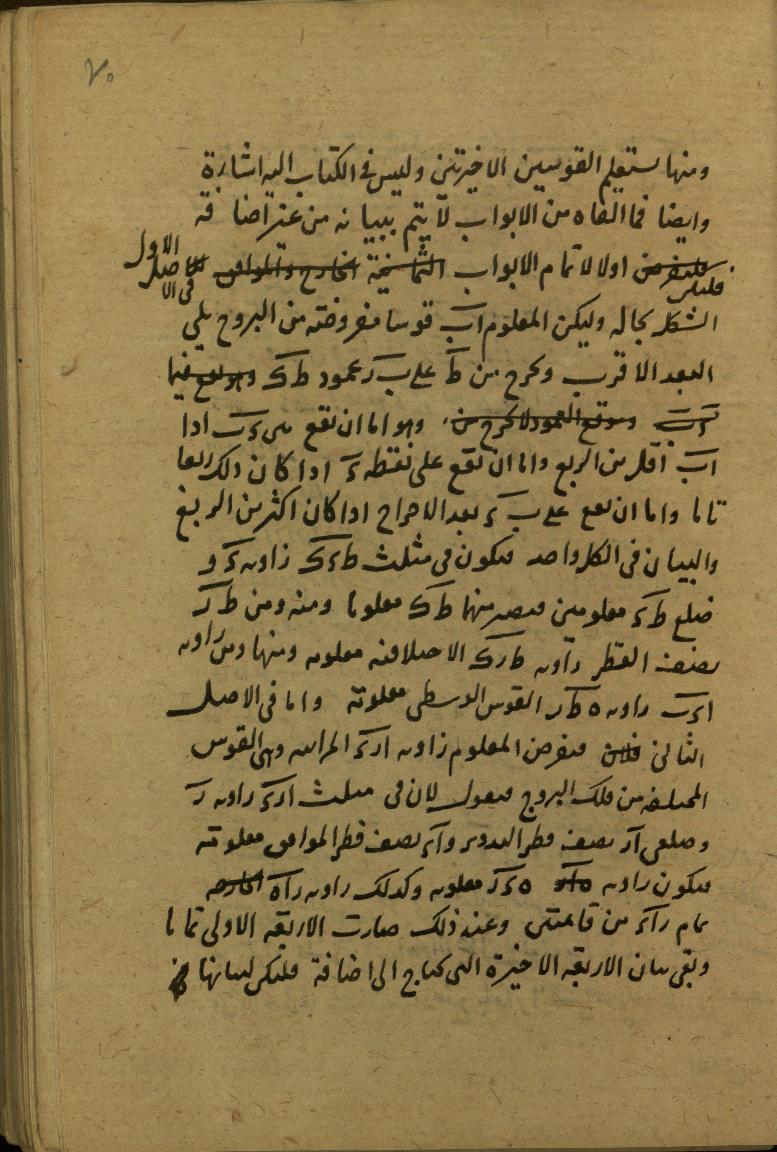 ٧٠
ومنها يستعلم القوسين الاخيرتين وليس في الكتاب اليه اشارة
وايضا فما القاه من الابواب لا يتم ببيانه من غير اضافة
فليكن اولا لاتمام الابواب الثمانية الخارج والموافق في الاصل الاول
الشكل بحاله وليكن المعلوم اب قوسا مفروضة من البروج يلي
البعد الاقرب ونخرج من ط على ب ر عمود ط ك
وموقع العمود لا يخرج من وهو اما ان يقع بين ء ب اذا
اب اقل من الربع واما ان يقع على نقطة ء اذا كان ذلك ربعا
تاما واما ان يقع على ب ء بعد الاخراج اذا كان اكثر من الربع
والبيان في الكل واحد فيكون في مثلث ط ء ك زاوية ء و
ضلع ط ء معلومين فيصير منها ط ك معلوما ومنه ومن ط ر
نصف القطر زاوية ط ر ك الاختلافية معلومة ومنها ومن زاوية
ا ء ب زاوية ه ط ر القوس الوسطى معلومة واما في الاصل
الثاني فنفرض المعلوم زاوية ا ر ء المرايية وهي القوس
المختلفة من فلك البروج فنقول لان في مثلث ا ر ء زاوية ر
وضلعي ا ر نصف قطر التدوير و ا ء نصف قطر الموافق معلومة
فيكون زاوية ه ء ر معلومة وكذلك زاوية ر ا ه
تمام ر ا ء من قائمتين وعند ذلك صارت الاربعة الاولى تماما
وبقي بيان الاربعة الاخيرة التي تحتاج الى اضافة فليكن لبيانها